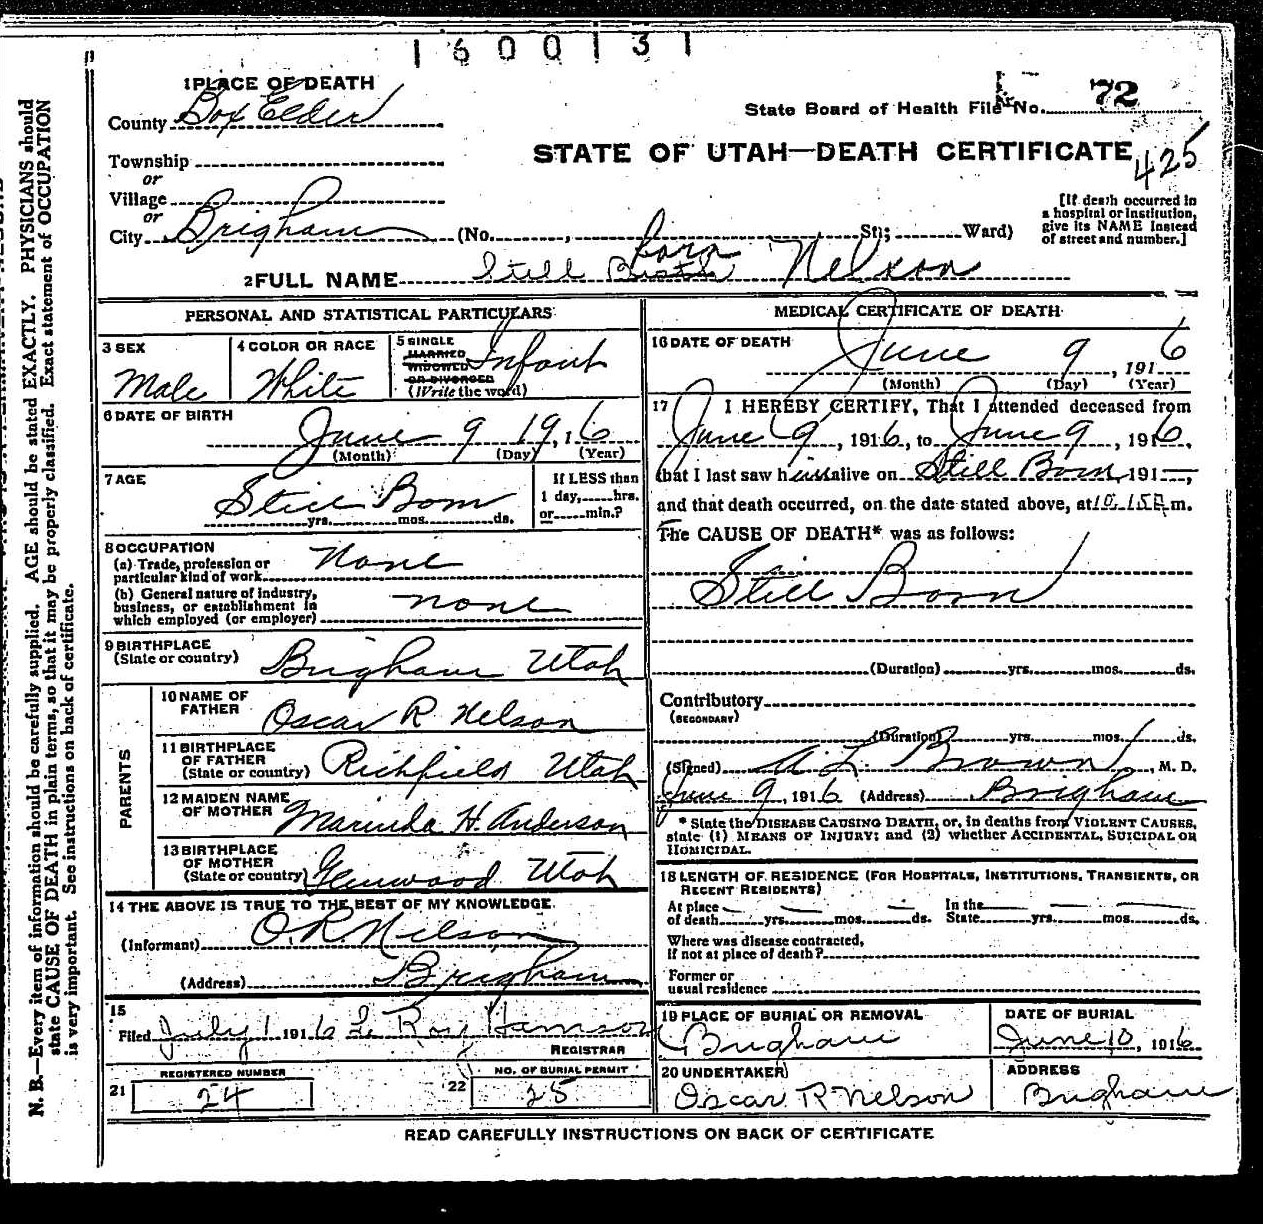 1600131
1 PLACE OF DEATH
County Box Elder
State Board of Health File No. 72
Township
or
STATE OF UTAH—DEATH CERTIFICATE
425
Village
or
City Brigham (No. , St; Ward)
[If death occurred in
a hospital or institution,
give its NAME instead
of street and number.]
born
2 FULL NAME Still Birth Nelson
PERSONAL AND STATISTICAL PARTICULARS
3 SEX
Male
4 COLOR OR RACE
White
5 SINGLE
MARRIED
WIDOWED
OR DIVORCED
(Write the word)
Infant
6 DATE OF BIRTH
June 9 19,16
(Month) (Day) (Year)
7 AGE
Still Born
yrs. mos. ds.
If LESS than
1 day, hrs.
or min.?
8 OCCUPATION
(a) Trade, profession or
particular kind of work None
(b) General nature of industry,
business, or establishment in
which employed (or employer) none
9 BIRTHPLACE
(State or country) Brigham Utah
PARENTS
10 NAME OF
FATHER Oscar R Nelson
11 BIRTHPLACE
OF FATHER
(State or country) Richfield Utah
12 MAIDEN NAME
OF MOTHER Marinda H. Anderson
13 BIRTHPLACE
OF MOTHER
(State or country) Glenwood Utah
14 THE ABOVE IS TRUE TO THE BEST OF MY KNOWLEDGE
(Informant) O.R. Nelson
(Address) Brigham
15
Filed July 1 1916 Le Roy
REGISTRAR
21
REGISTERED NUMBER
24
22
NO. OF BURIAL PERMIT
25
MEDICAL CERTIFICATE OF DEATH
16 DATE OF DEATH
June 9, 1916
(Month) (Day) (Year)
17 I HEREBY CERTIFY, That I attended deceased from
June 9, 1916, to June 9, 1916,
that I last saw him alive on Still Born 191—,
and that death occurred, on the date stated above, at 10.15 m.
The CAUSE OF DEATH* was as follows:
Still Born
(Duration) yrs. mos. ds.
Contributory
(SECONDARY)
(Duration) yrs. mos. ds.
(Signed) A L Brown, M. D.
June 9, 1916 (Address) Brigham
* State the DISEASE CAUSING DEATH, or, in deaths from VIOLENT CAUSES,
state (1) MEANS OF INJURY; and (2) whether ACCIDENTAL, SUICIDAL OR
HOMICIDAL.
18 LENGTH OF RESIDENCE (FOR HOSPITALS, INSTITUTIONS, TRANSIENTS, OR
RECENT RESIDENTS)
At place In the
of death yrs. mos. ds. State yrs. mos. ds.
Where was disease contracted,
If not at place of death?
Former or
usual residence
19 PLACE OF BURIAL OR REMOVAL
Brigham
DATE OF BURIAL
June 10, 1916
20 UNDERTAKER
Oscar R Nelson
ADDRESS
Brigham
READ CAREFULLY INSTRUCTIONS ON BACK OF CERTIFICATE
N. B.—Every item of information should be carefully supplied. AGE should be stated EXACTLY. PHYSICIANS should
state CAUSE OF DEATH in plain terms, so that it may be properly classified. Exact statement of OCCUPATION
is very important. See instructions on back of certificate.